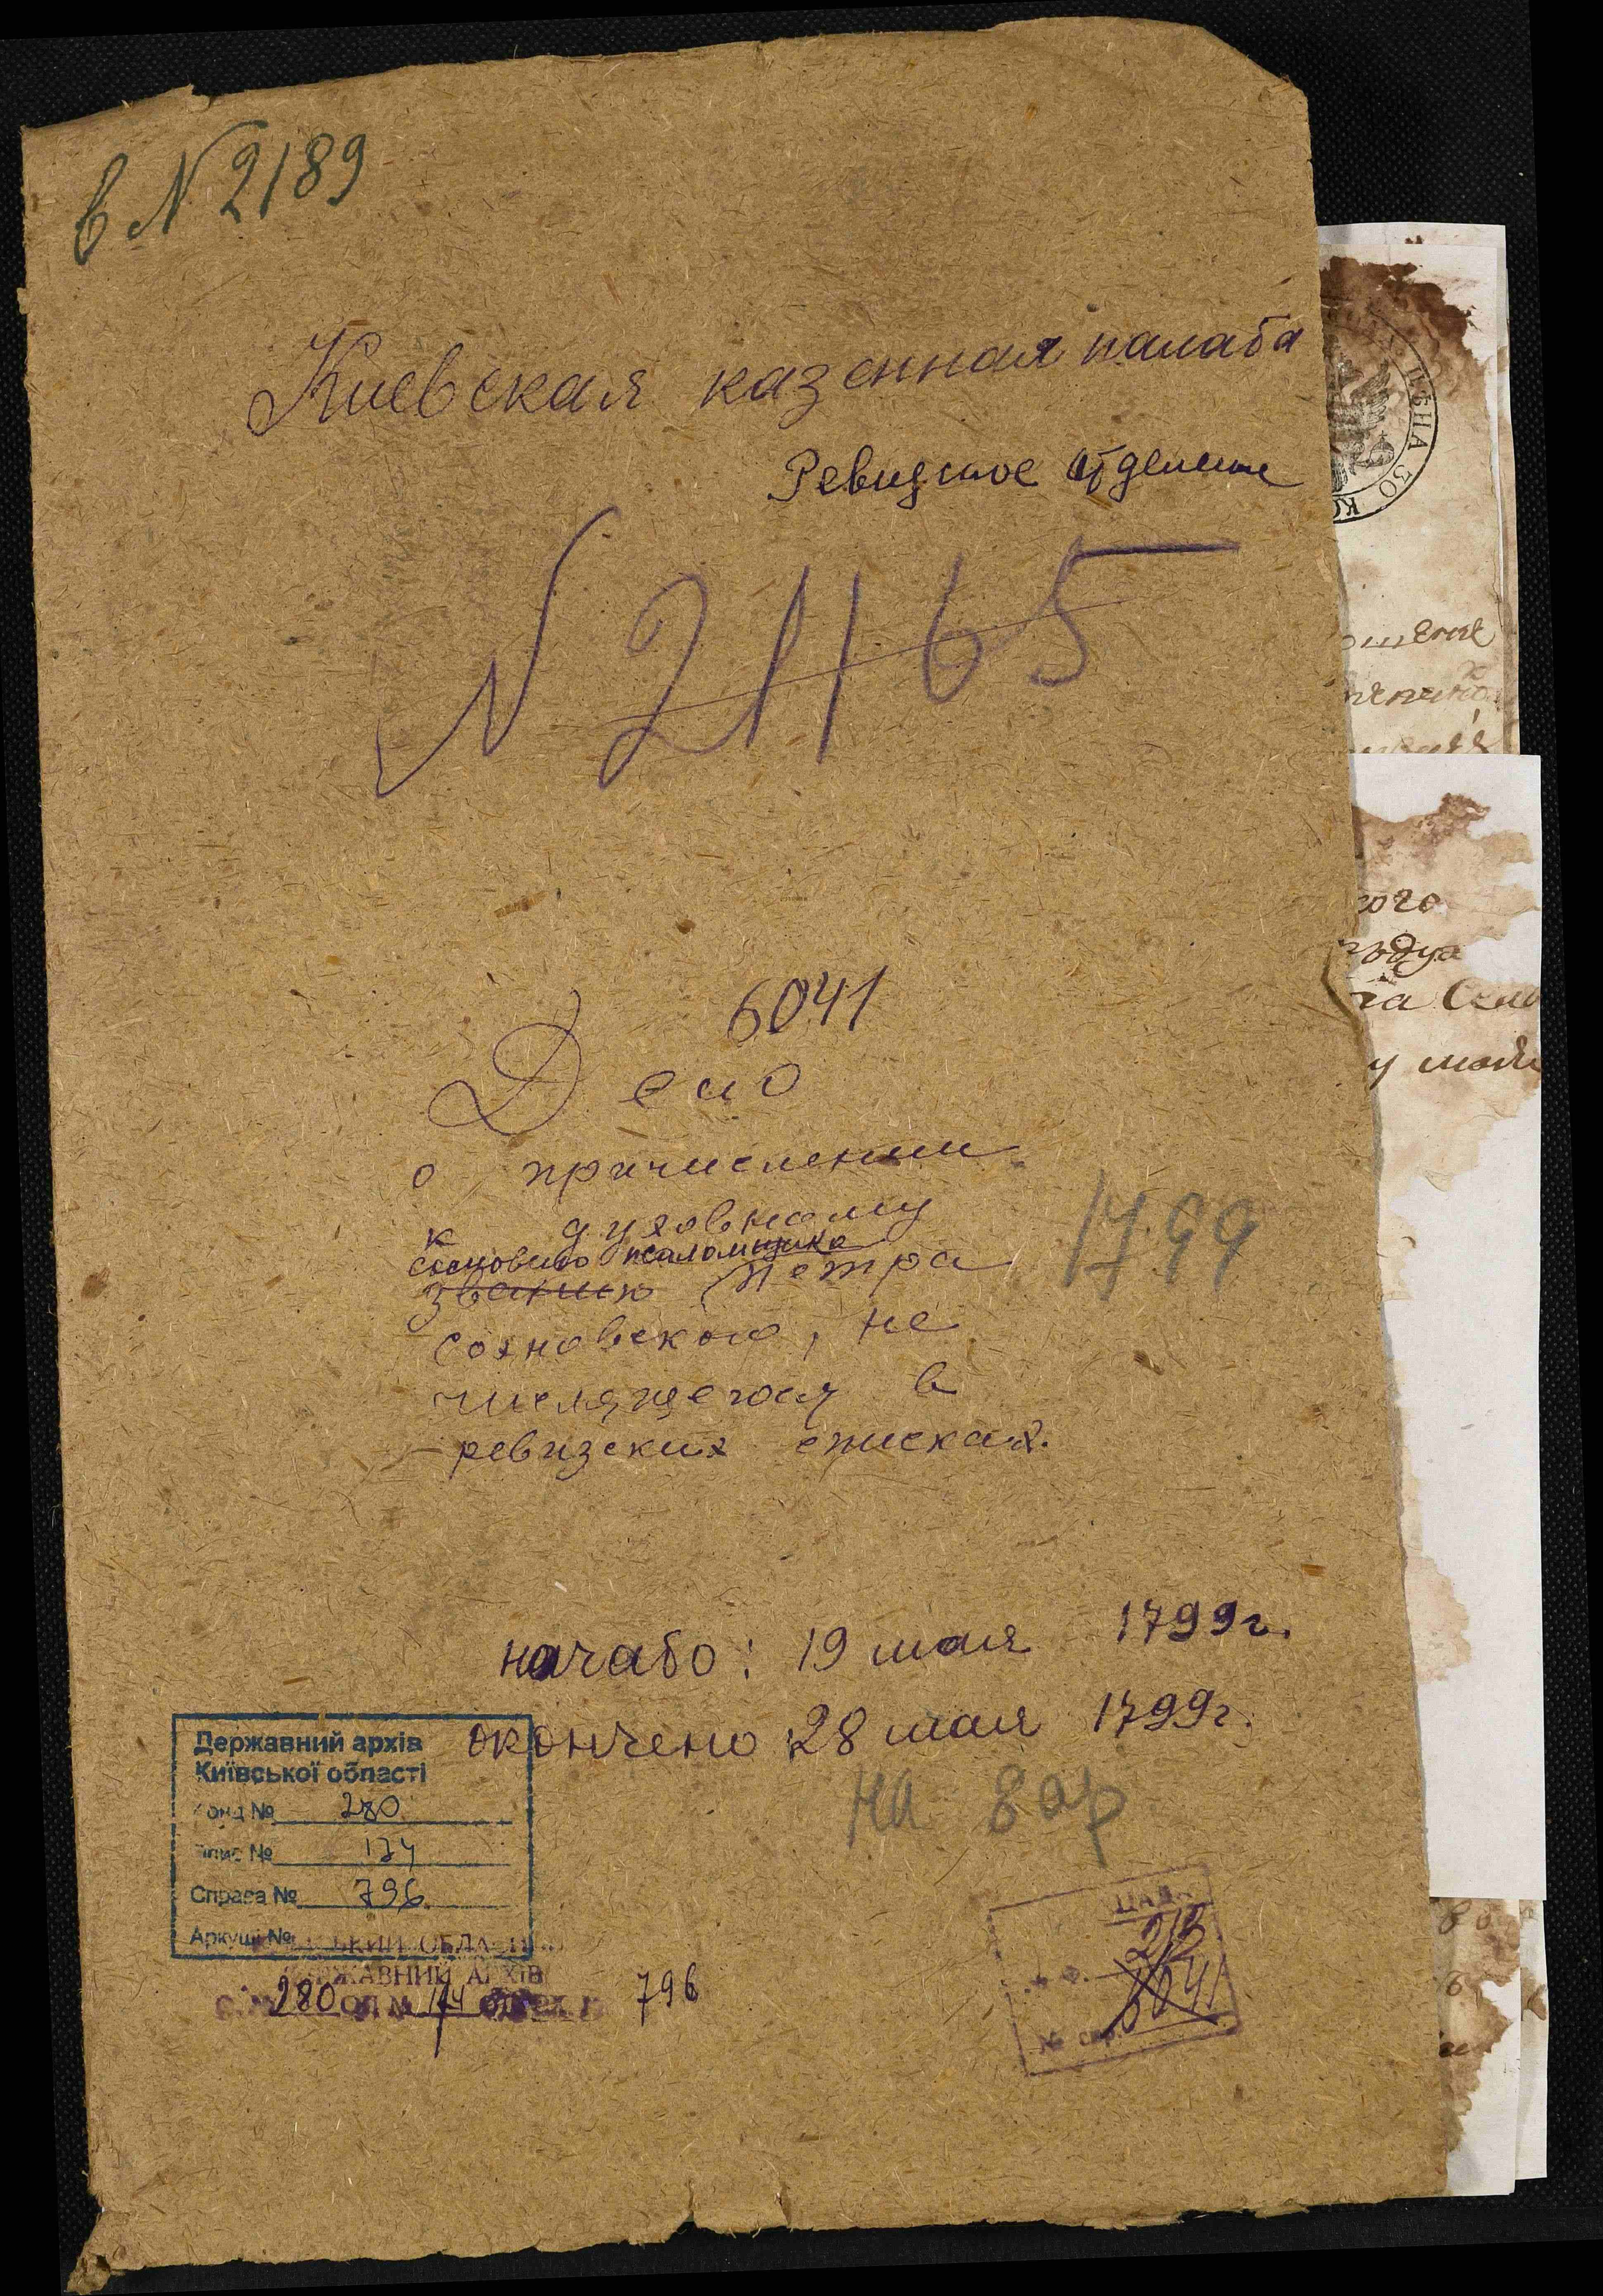 в N 2189
Киевская казенная палата
Ревизское отделение
N 21165
6041
Дело
о причислении
к духовному
сословию псаломщика
званию Петра
Сохновского, не
числящегося в
ревизских списках.
1799
начато: 19 мая 1799г.
окончено 28 мая 1799г.
на 8 ар
Державний архів
Київської області
Фонд № 280
Опис № 174
Справа № 796
Аркуші №
ДЕРЖАВНИЙ АРХІВ
280 оп. № 174 796
ЦАДА
6041
№ спр.
ЦѢНА 30 КО
ого
году
та Селе